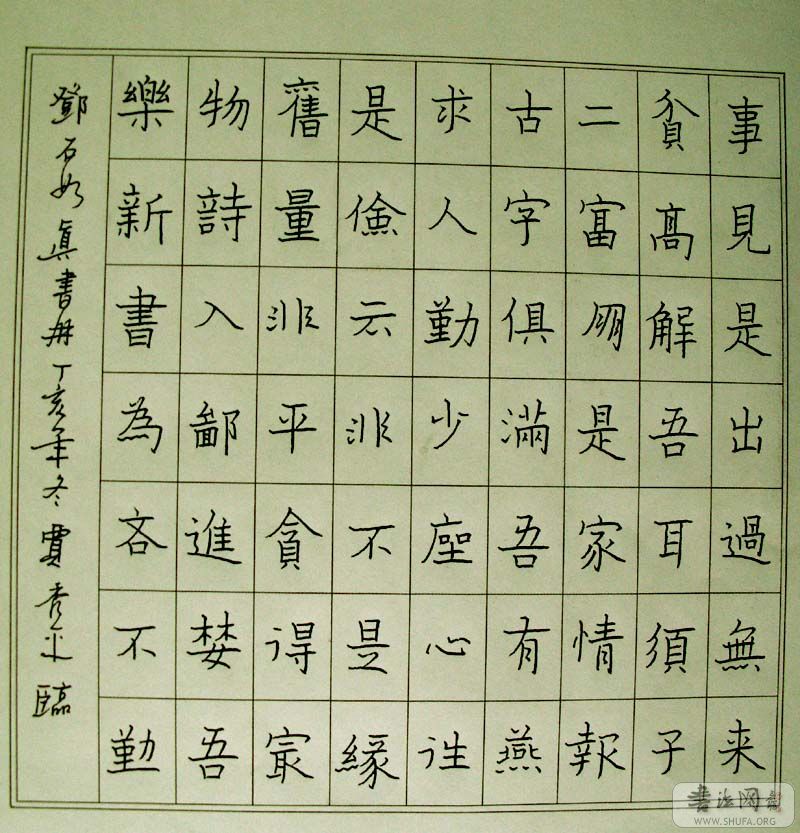 事見是出過無来
貧髙解吾耳須子
二富是家情報
古字俱滿吾有燕
求人勤少座心
是儉云非不是緣
舊量非平貪得㝡
物詩入鄙進婪吾
樂新書為吝不勤
鄧石如眞書冊丁亥年冬賈臨
書法网
WWW.SHUFA.ORG